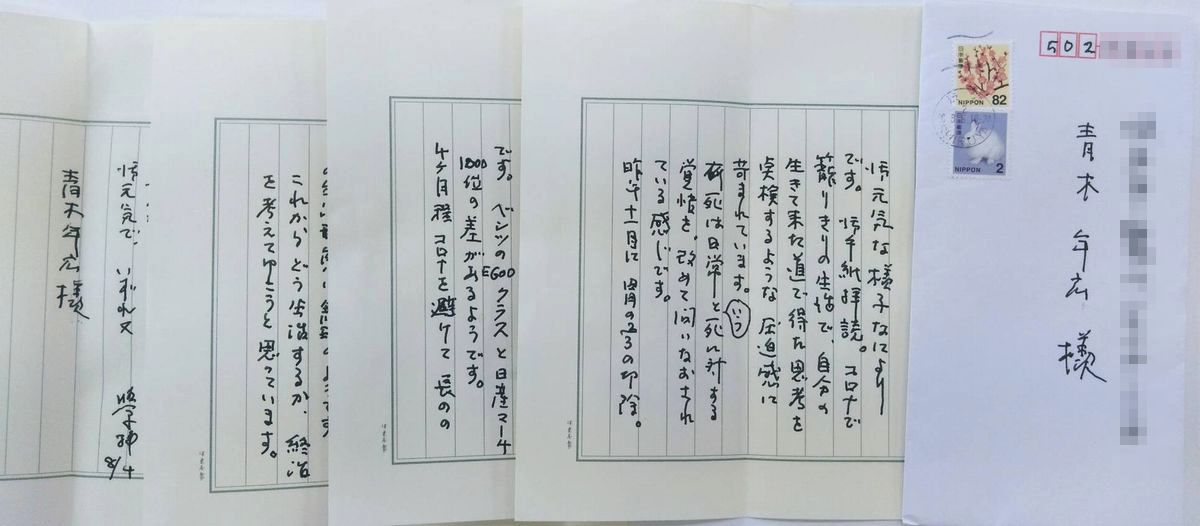 502
日本郵便
82
NIPPON
日本郵便
NIPPON 2
青木年広様
御元気な様子なにより
です。御手紙拝読。コロナで
籠りきりの生活で、自分の
生きて来た道で得た思考を
実検するような圧迫感に
苛まれています。
病死は日常と死に対する
いつ
覚悟を、改めて問いなおされ
ている感じです。
昨年十一月に胃の2/3の切除。
です。ベンツのE600クラスと日産マーチ
1000位の差があるようです。
4ヶ月程コロナを避けて長の
これからどう生活するか、終活
を考えてゆこうと思っています。
御元気で、いずれ又
8/4
青木年広様